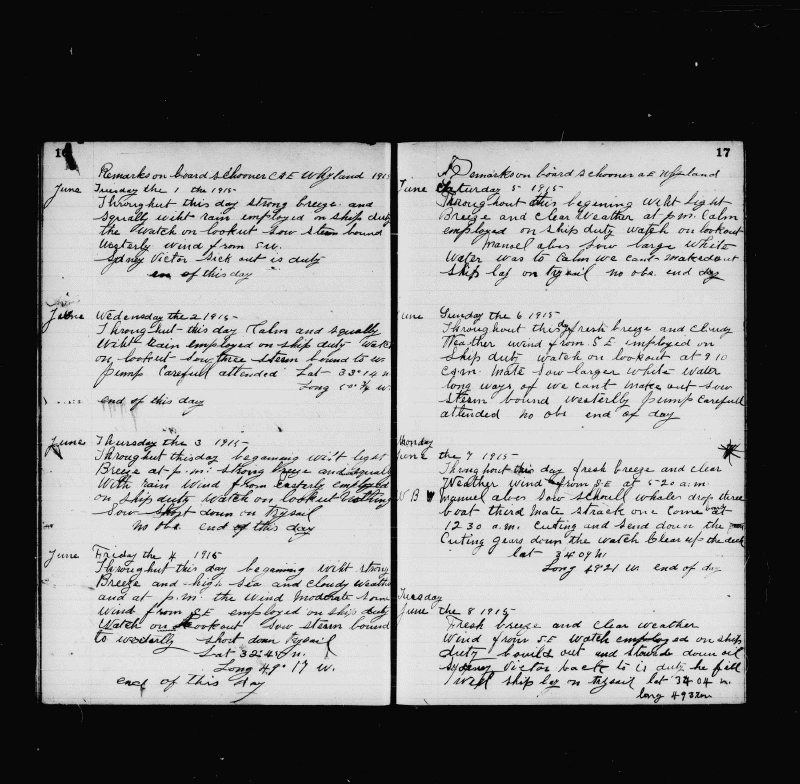 16
Remarks on board schooner A E Whyland 1915
June Tuesday the 1 the 1915
Throughut this day strong breeze and
squally wiht rain employed on ship duty
the watch on lookout sow steem bound
westerly wind from S.W.
Sydney Victor sick out is duty
en of this day
June Wedensday the 2 1915
Throughut this day Calm and squally
Wiht rain employed on ship duty watc
on lookout sow three steem bound to W.
pump Carefull attended Lat 33° 14 N
Long 50° 34 W.
end of this day
June Thursday the 3 1915
Throughut this day beganning wiht light
Breeze at p.m. strong breeze and squaly
With rain Wind from easterly employed
on ship duty Watch on lookout Nothing
Sow short down on trysail
no obs. end of this day
June Friday the 4 1915
Throughut this day beganning wiht strong
Breeze and high sea and cloudy weathe
and at p.m. the wind moderate som
wind from S.E employed on ship duty
Watch on lookout Sow steem bound
to westerly short down trysail
Lat 32° 45 N.
Long 49° 17 W.
end of this day
17
Remarks on board schooner A E Whyland
June Saturday 5 1915
Throughout this begening wiht light
Breeze and clear weather at p.m. Calm
employed on ship duty watch on lookout
Manuel alves sow large white
Water was to Calm we cant maked out
ship lay on trysail no obs. end day
June Sunday the 6 1915
Throughout this day fresh breeze and cloudy
Weather wind from S.E employed on
ship duty watch on lookout at 9 10
a.m. Mate sow larger white water
long ways of we cant make out sow
steem bound westerly pump carefull
attended no obs end of day
Monday
June the 7 1915
Throughout this day fresh breeze and clear
Weather Wind from S.E at 5-20 a.m.
N B Manuel alves sow schoull whales drop three
boat third mate strack one come
12 30 a.m. Cuting and send down the
Cuting gears down the watch Clear up the deck
lat 34 09 N
Long 4921 W. end of day
Tuesday
June the 8 1915
Fresh breeze and clear weather
Wind from S.E Watch employed on ship
duty bouild out and stowde down oil
Sydney Victor back to is duty he fill
well ship lay on trysail lat 34 04 N.
long 49